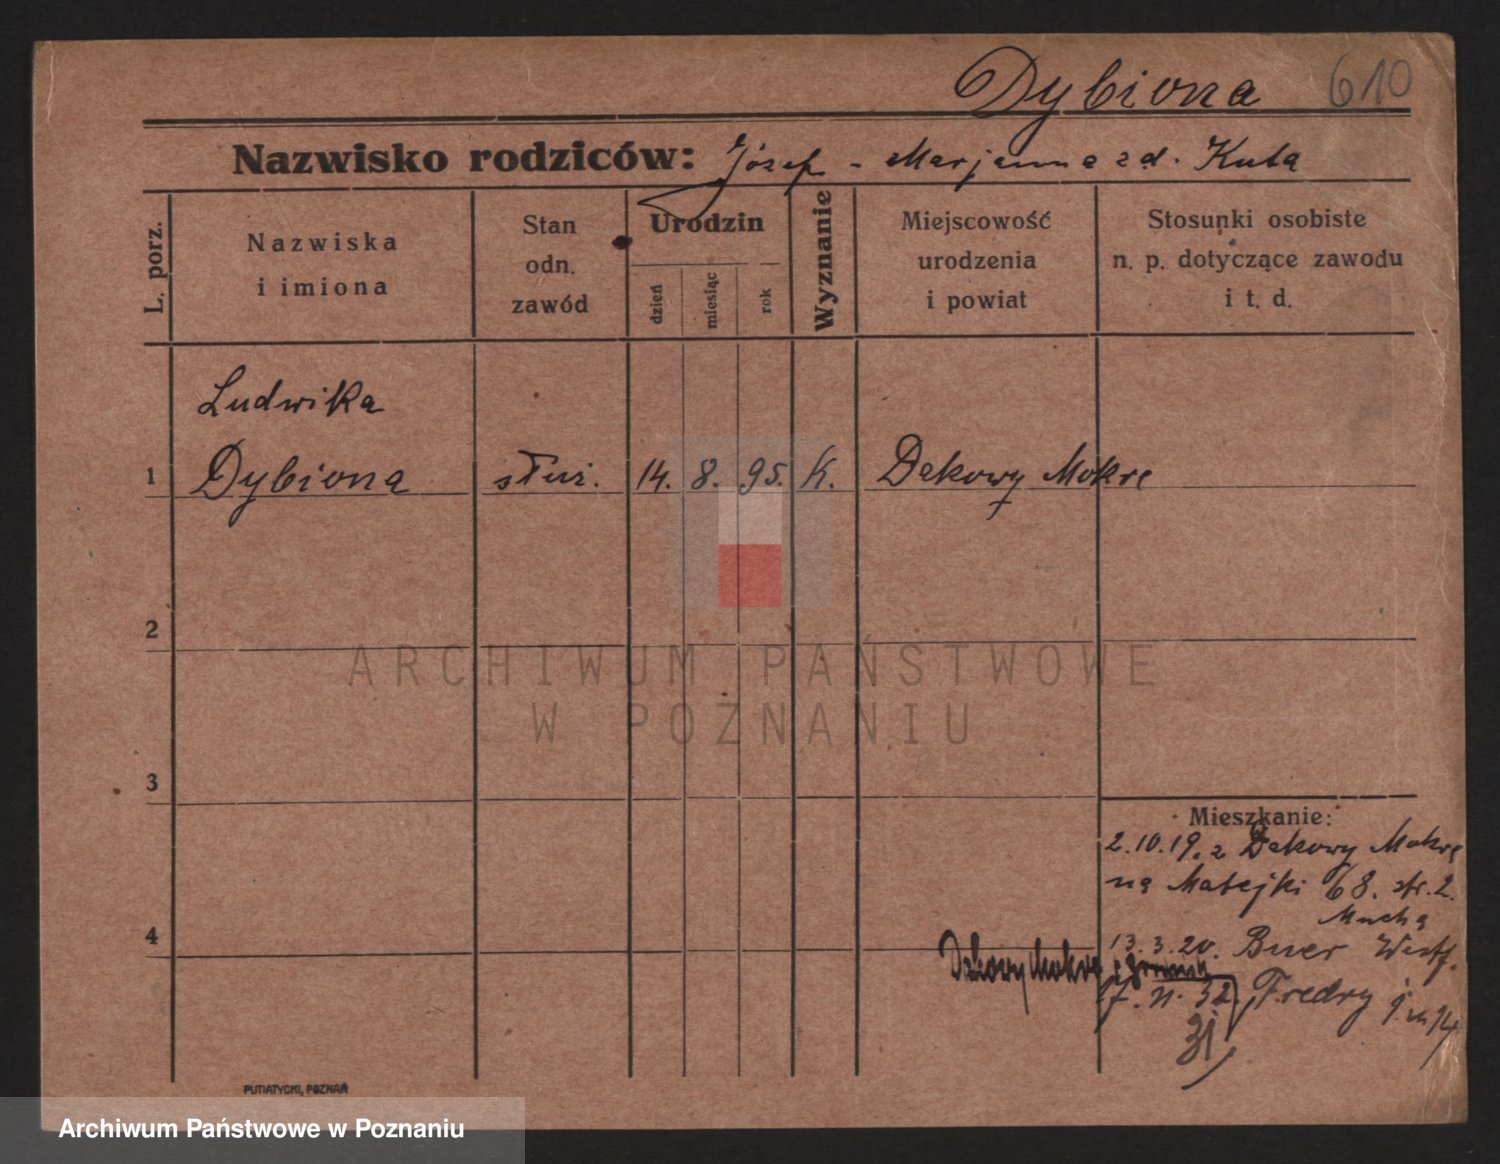 Dybiona 610
Nazwisko rodziców: Józef - Marjanna zd. Kuta
L. porz.
Nazwiska
i imiona
Stan
odn.
zawód
Urodzin
dzień
miesiąc
rok
Wyznanie
Miejscowość
urodzenia
i powiat
Stosunki osobiste
n. p. dotyczące zawodu
i t. d.
Ludwika
1 Dybiona służ. 14. 8. 95. K. Dakowy Mokre
2
ARCHIWUM PAŃSTWOWE
W POZNANIU
3
Mieszkanie:
2.10.19. z Dakowy Mokre
na Matejki 68. str. 2.
Mucha
4
13.3.20. Buer Westf.
Dakowy Mokre
Fredry
31
PUTIATYCKI, POZNAŃ
Archiwum Państwowe w Poznaniu